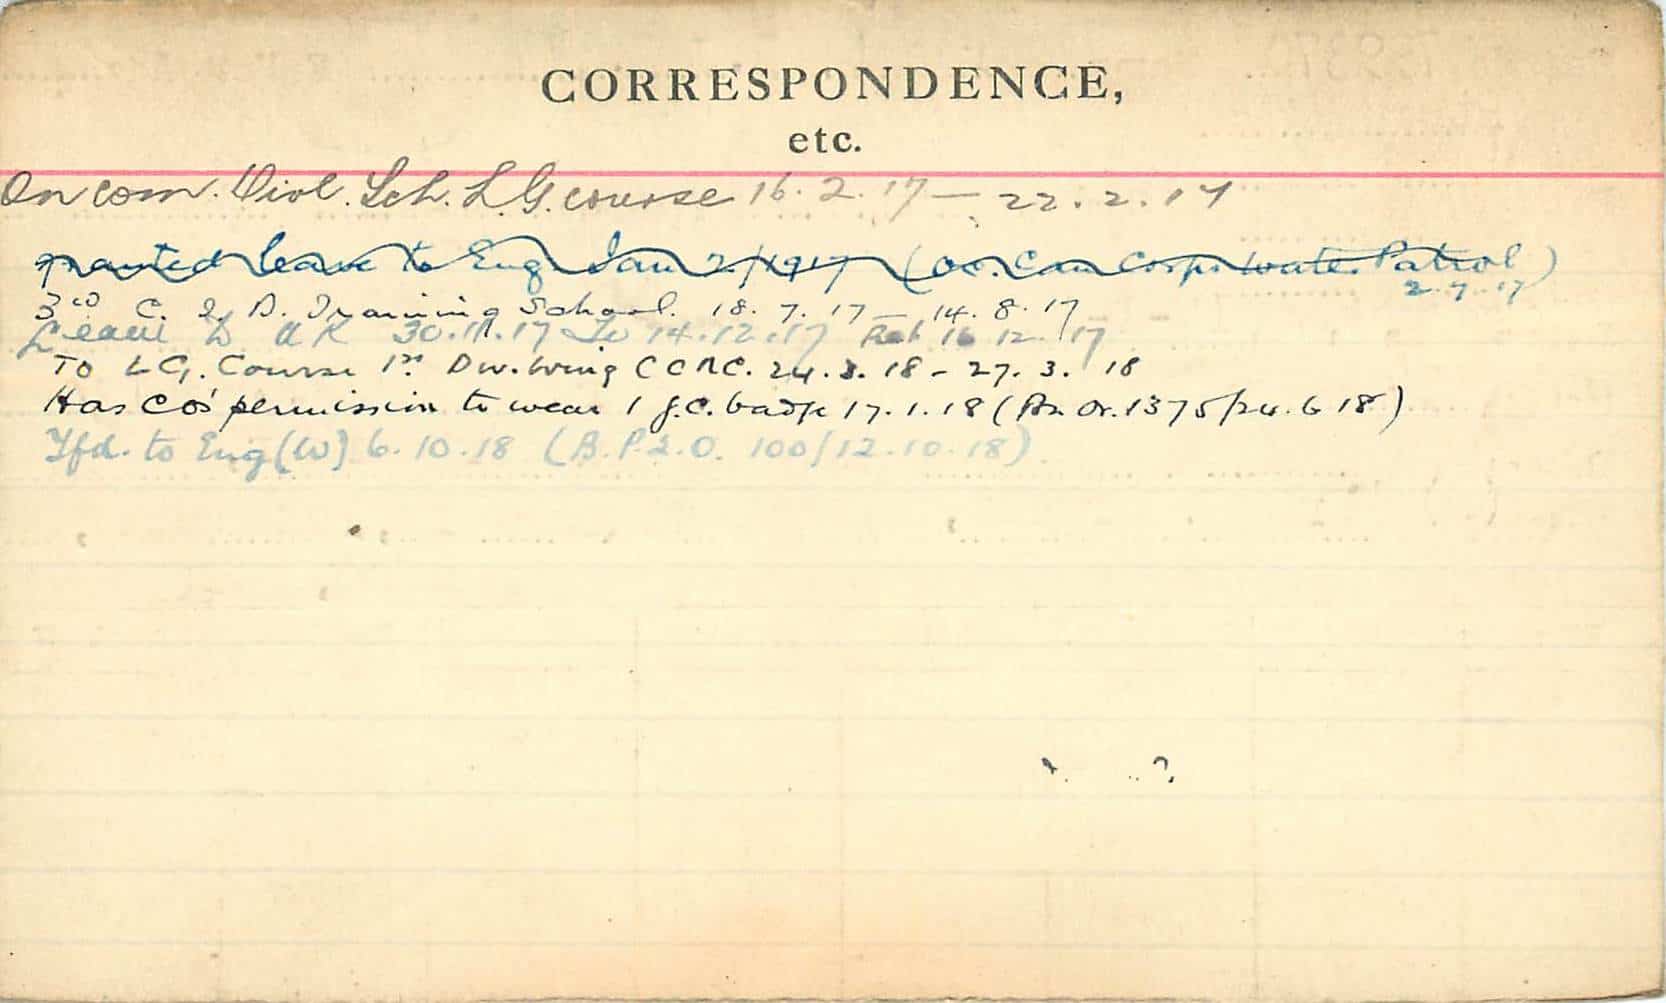 CORRESPONDENCE,
etc.
On com. Divl. Sch. L.G. course 16.2.17 — 22.2.17
granted leave to Eng. Jan 2/1917 (Oo. Can Corps Water Patrol)
2.7.17
3rd C. I. B. Training School. 18.7.17 — 14.8.17
Leave to UK 30.11.17 to 14.12.17 Ret 16.12.17
To LG. Course 1st Div. Wing CCRC. 24.3.18 - 27.3.18
Has CO's permission to wear 1 G.C. badge 17.1.18 (Bn. Or. 1375/24.6.18)
Tfd. to Eng (W) 6.10.18 (B.P.2.O. 100/12.10.18)